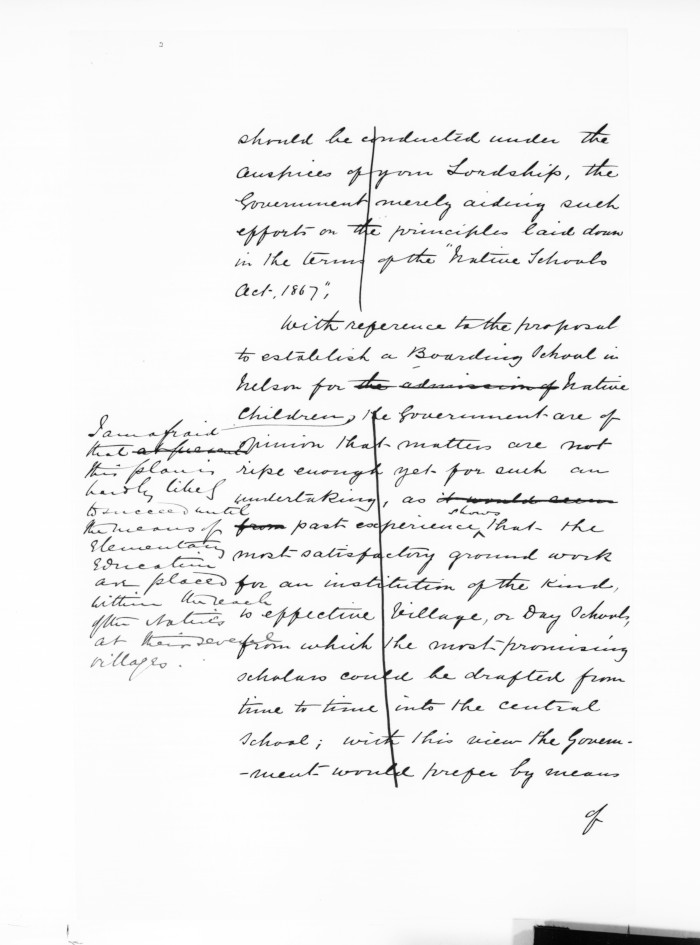 should be conducted under the
auspices of your Lordship, the
Government merely aiding such
efforts on the principles laid down
in the terms of the "Native Schools
Act, 1867",
With reference to the proposal
to establish a Boarding School in
Nelson for the admission of Native
Children, the Government are of
opinion that matters are not
ripe enough yet for such an
undertaking, as it would seem
shows
from past experience that the
most satisfactory ground work
for an institution of the kind,
is effective Village, or Day Schools,
from which the most promising
scholars could be drafted from
time to time into the central
School; with this view the Govern-
-ment would prefer by means
of
I am afraid
that at present
this plan is
hardly likely
to succeed until
the means of
Elementary
Education
are placed
within the reach
of the Natives
at their several
villages.